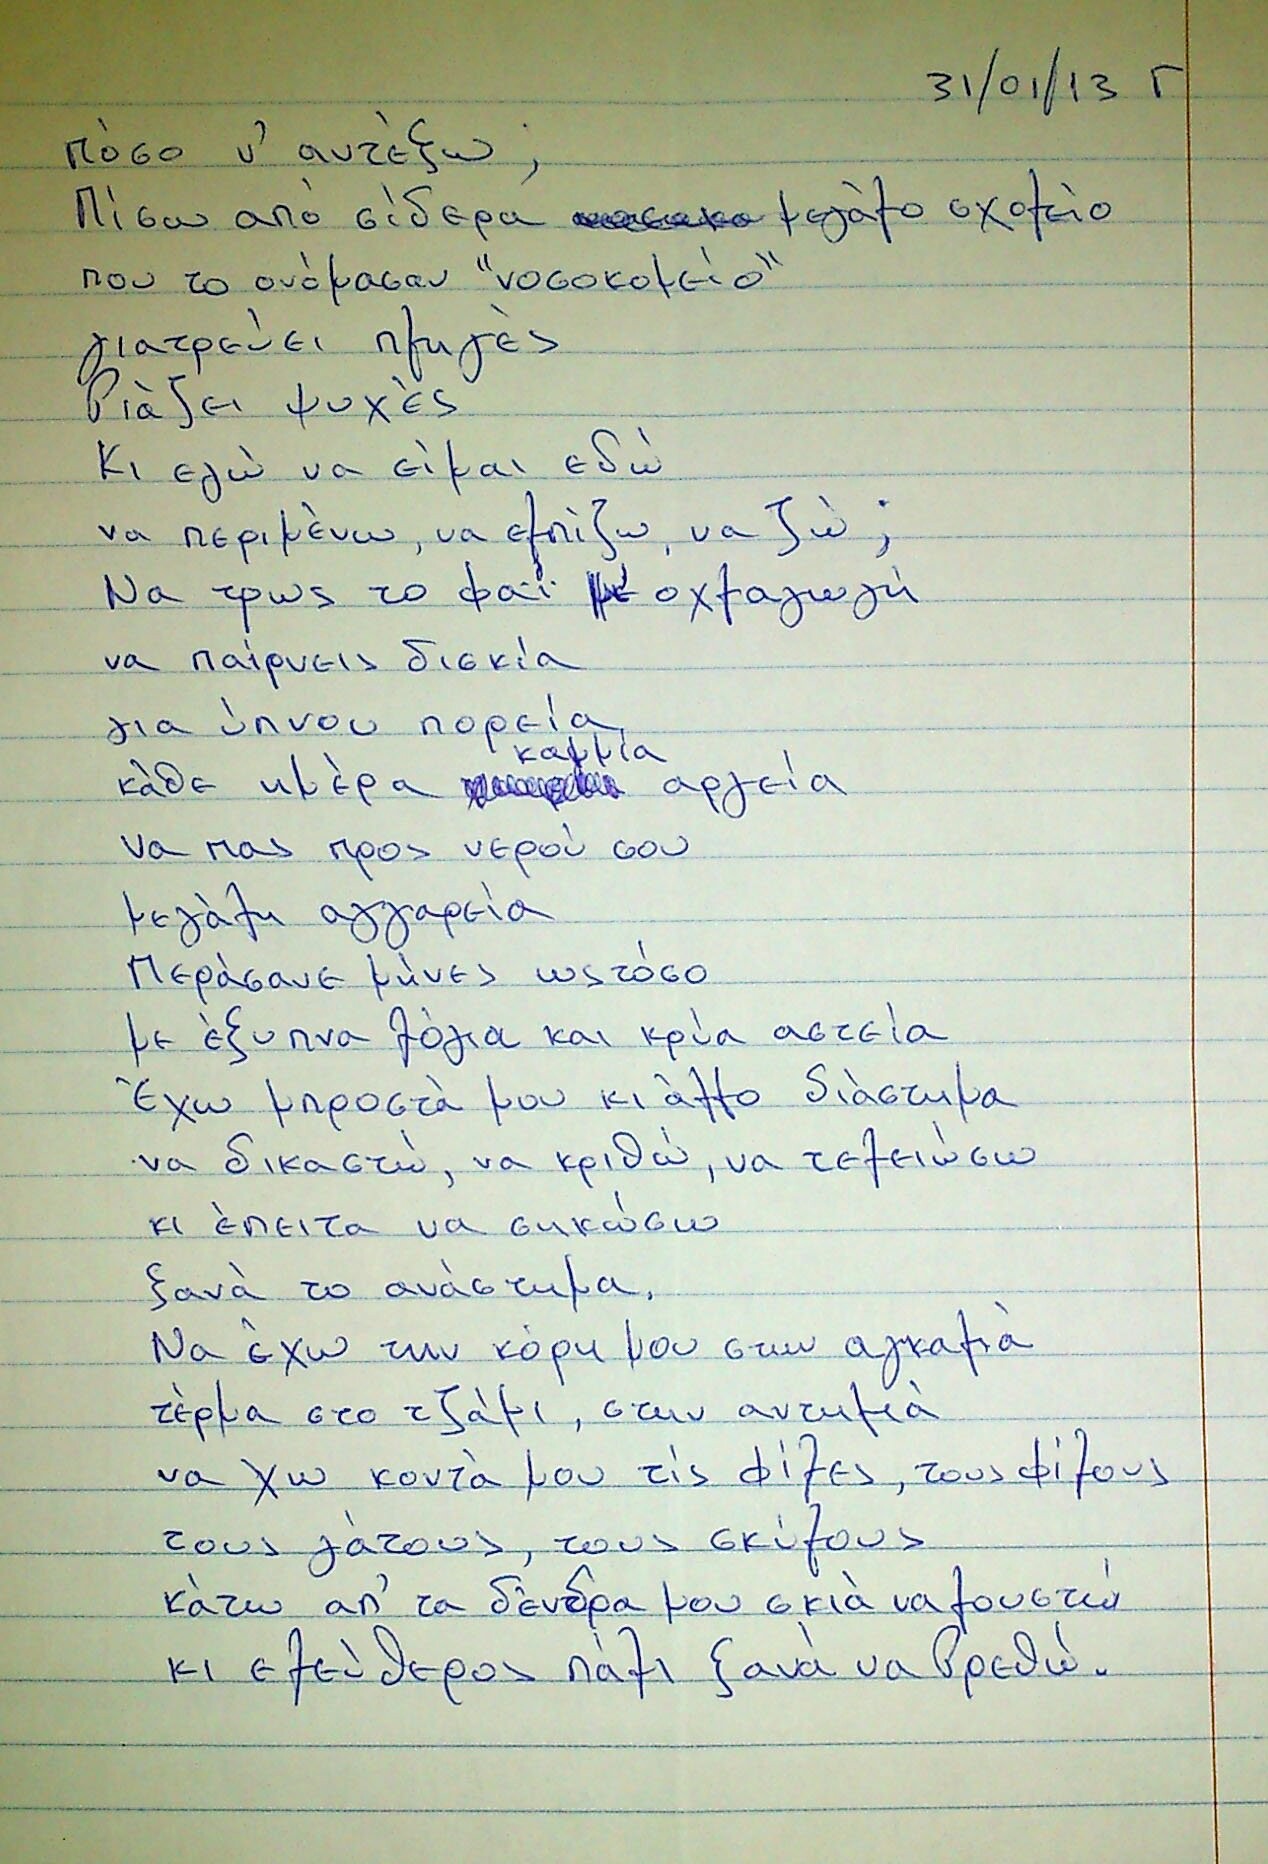 31/01/13 Γ
Πόσο ν' αντέξω;
Πίσω από σίδερα μεγάλο σχολείο
που το ονόμασαν "νοσοκομείο"
γιατρεύει πληγές
βιάζει ψυχές
Κι εγώ να είμαι εδώ
να περιμένω, να ελπίζω, να ζώ;
Να τρως το φαΐ με οχλαγωγή
να παίρνεις δισκία
για ύπνου πορεία,
καμμία
κάθε ημέρα αργεία
να πας προς νερού σου
μεγάλη αγγαρεία
Περάσανε μήνες ωςτόσο
με έξυπνα λόγια και κρύα αστεία
Έχω μπροστά μου κι άλλο διάστημα
να δικαστώ, να κριθώ, να τελειώσω
κι έπειτα να σηκώσω
ξανά το ανάστημα.
Να έχω την κόρη μου στην αγκαλιά
τέρμα στο τζάμι, στην αντηλιά
να χω κοντά μου τις φίλες, τους φίλους
τους γάτους, τους σκύλους
κάτω απ' τα δέντρα μου σκιά να λουστώ
κι ελεύθερος πάλι ξανά να βρεθώ.